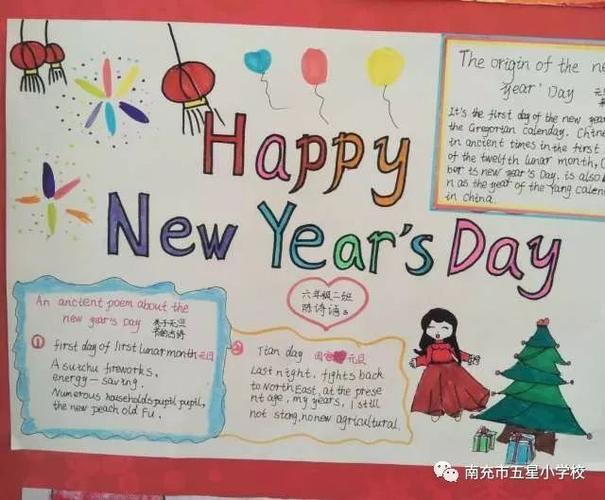 Happy
New Year's Day
The origin of the ne
Year' Day
It's the first day of the new year
the Gregorian calenday. Chine
in ancient times in the first
of the twelfth lunar month, (
ber is new year's Day. is also
n as the year of the Yang calen
in China.
六年级二班
陈诗语。
An ancient poem about the
new year's Day 关于元旦
的古诗
① first day of first lunar month 元旦
A suichu fireworks,
energy — saving.
Numerous households pupil, pupil,
the new peach old Fu.
② Tian day 元旦
Last night, fights back
to North East, at the prese
nt age, my years, I still
not stong, no new agricultural.
南充市五星小学校